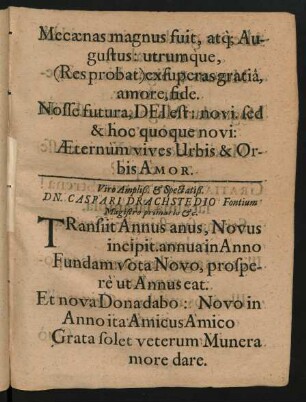 Mecænas magnus fuit, atq; Au-
gustus: utrumque,
(Res probat) exsuperas gratiâ,
amore, fide.
Nosse futura, DEI est: novi. sed
& hoc quoque novi:
Æternùm vives Urbis & Or-
bis AMOR.
Viro Ampliss. & Spectatiss.
DN. CASPARI DRACHSTEDIO Fontium
Magistro primario &c.
TRansiit Annus anus, Novus
incipit. annua in Anno
Fundam vota Novo, prospe-
rè ut Annus eat.
Et nova Dona dabo: Novo in
Anno ita Amicus Amico
Grata solet veterum Munera
more dare.